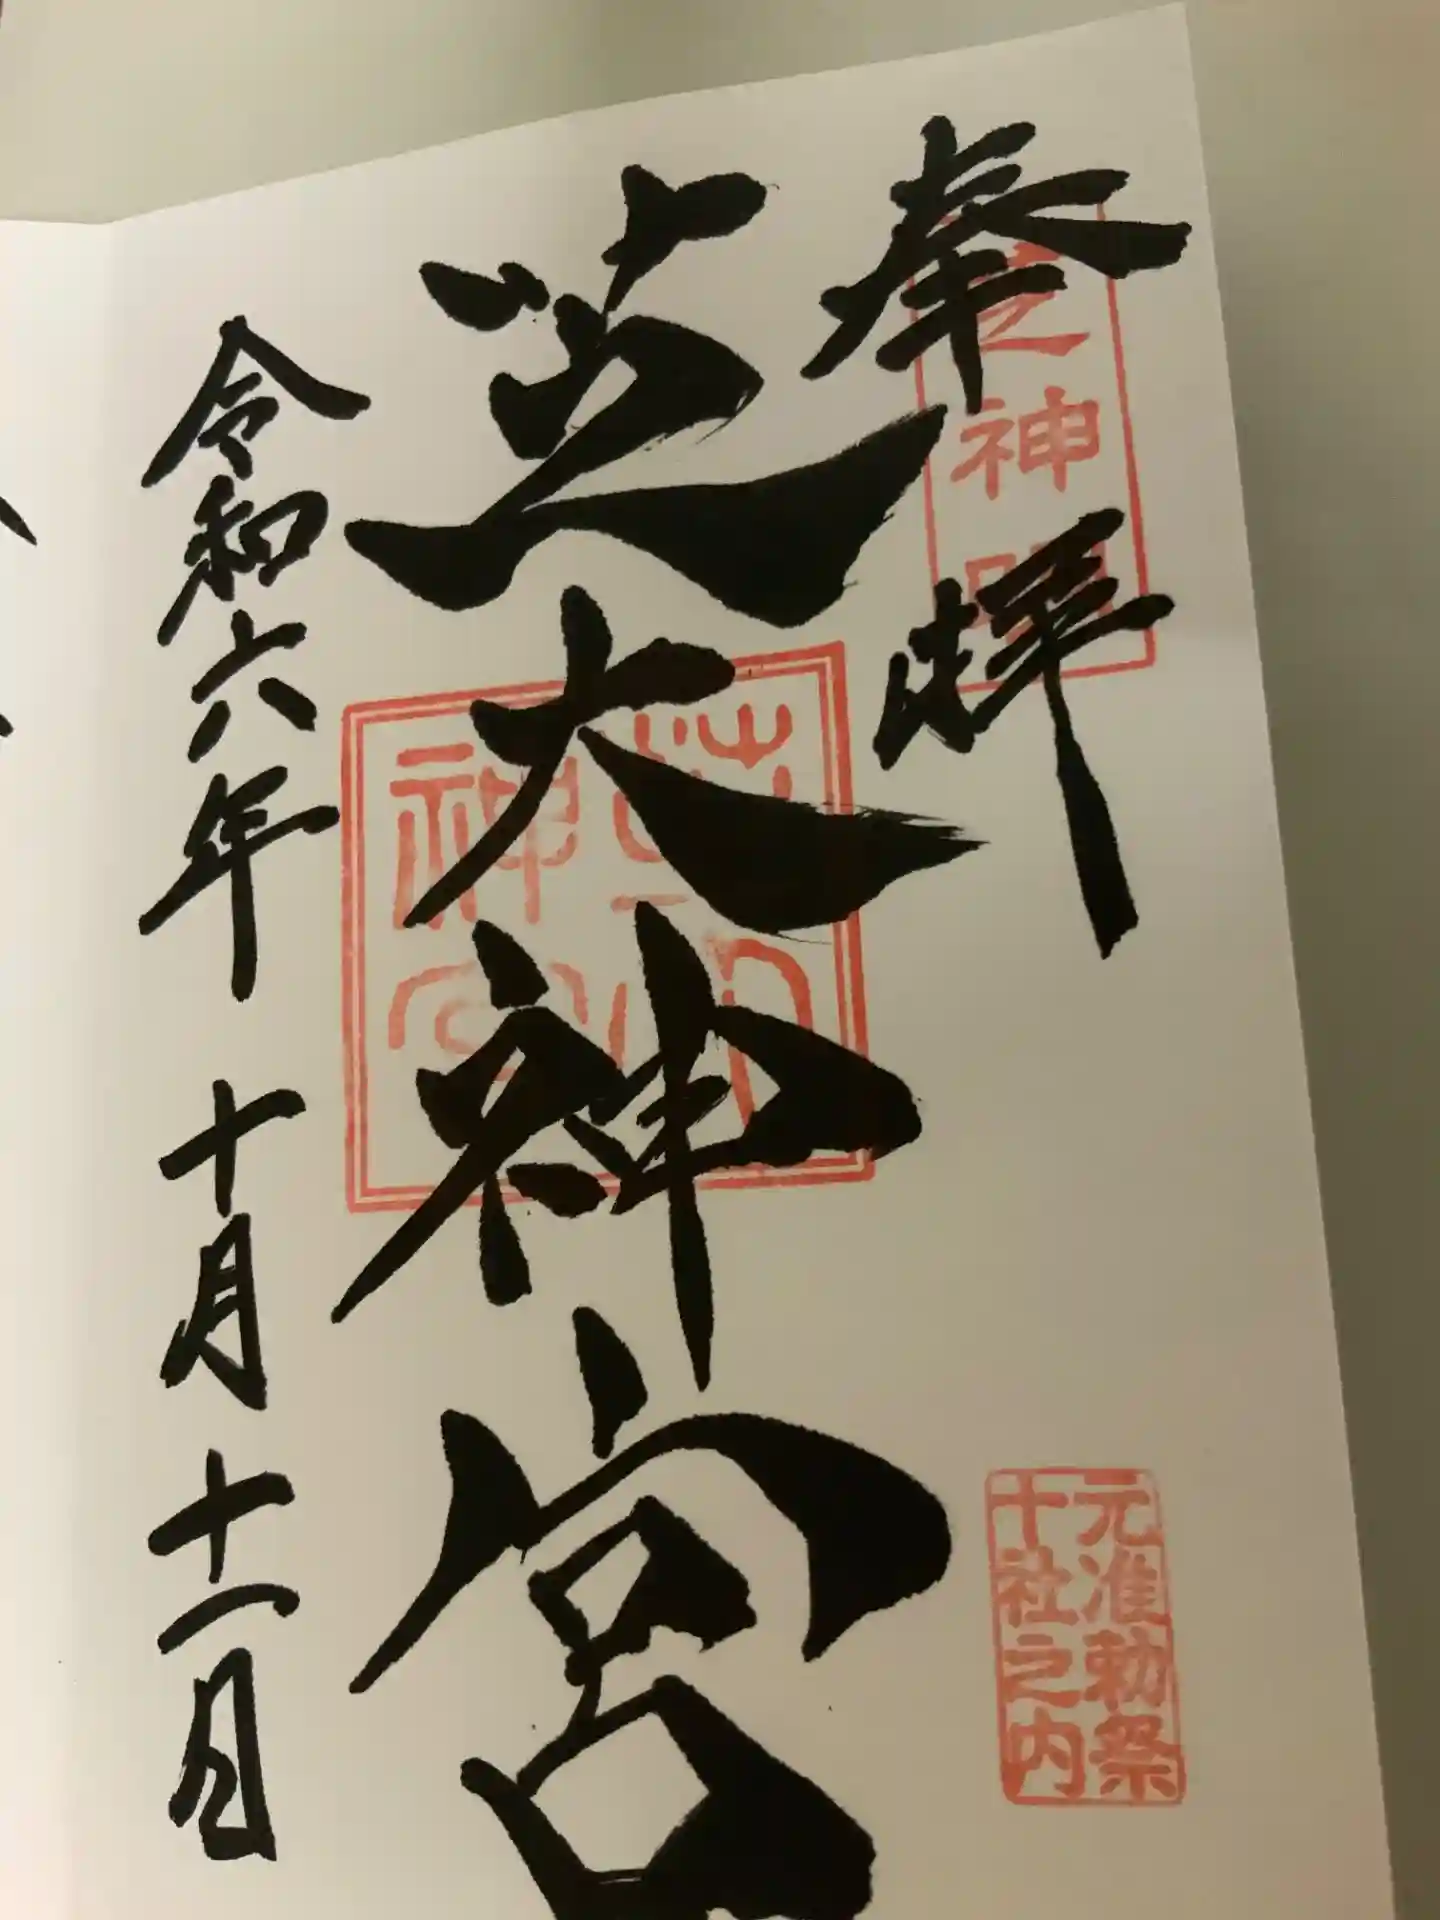 奉拝
芝神明
芝大神宮
芝大神宮
元准勅祭
十社之内
令和六年 十月 十一日